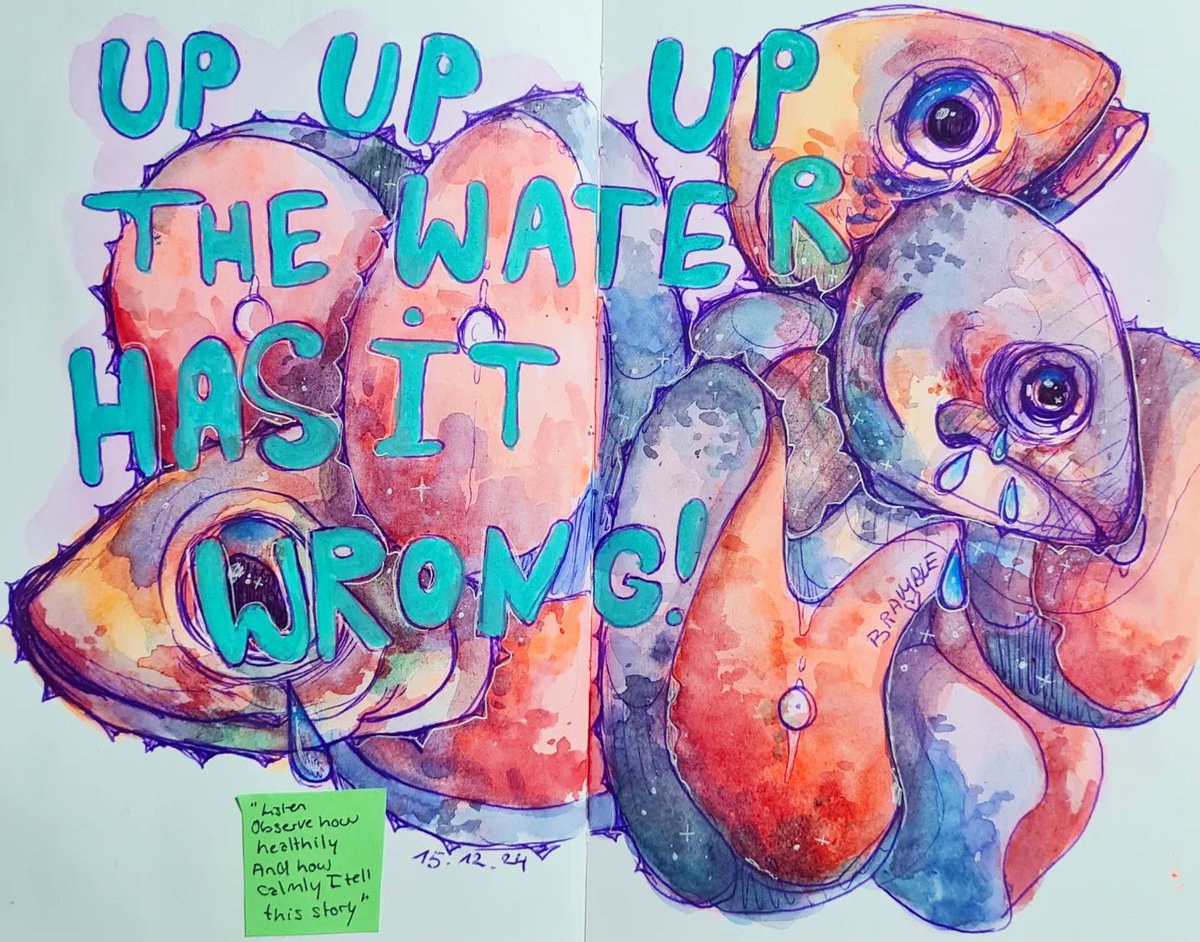 UP UP UP
THE WATER
HAS iT
WRONG!
BRAMBLE
15.12.24
"Listen
Observe how
healthily
And how
calmly I tell
this story"